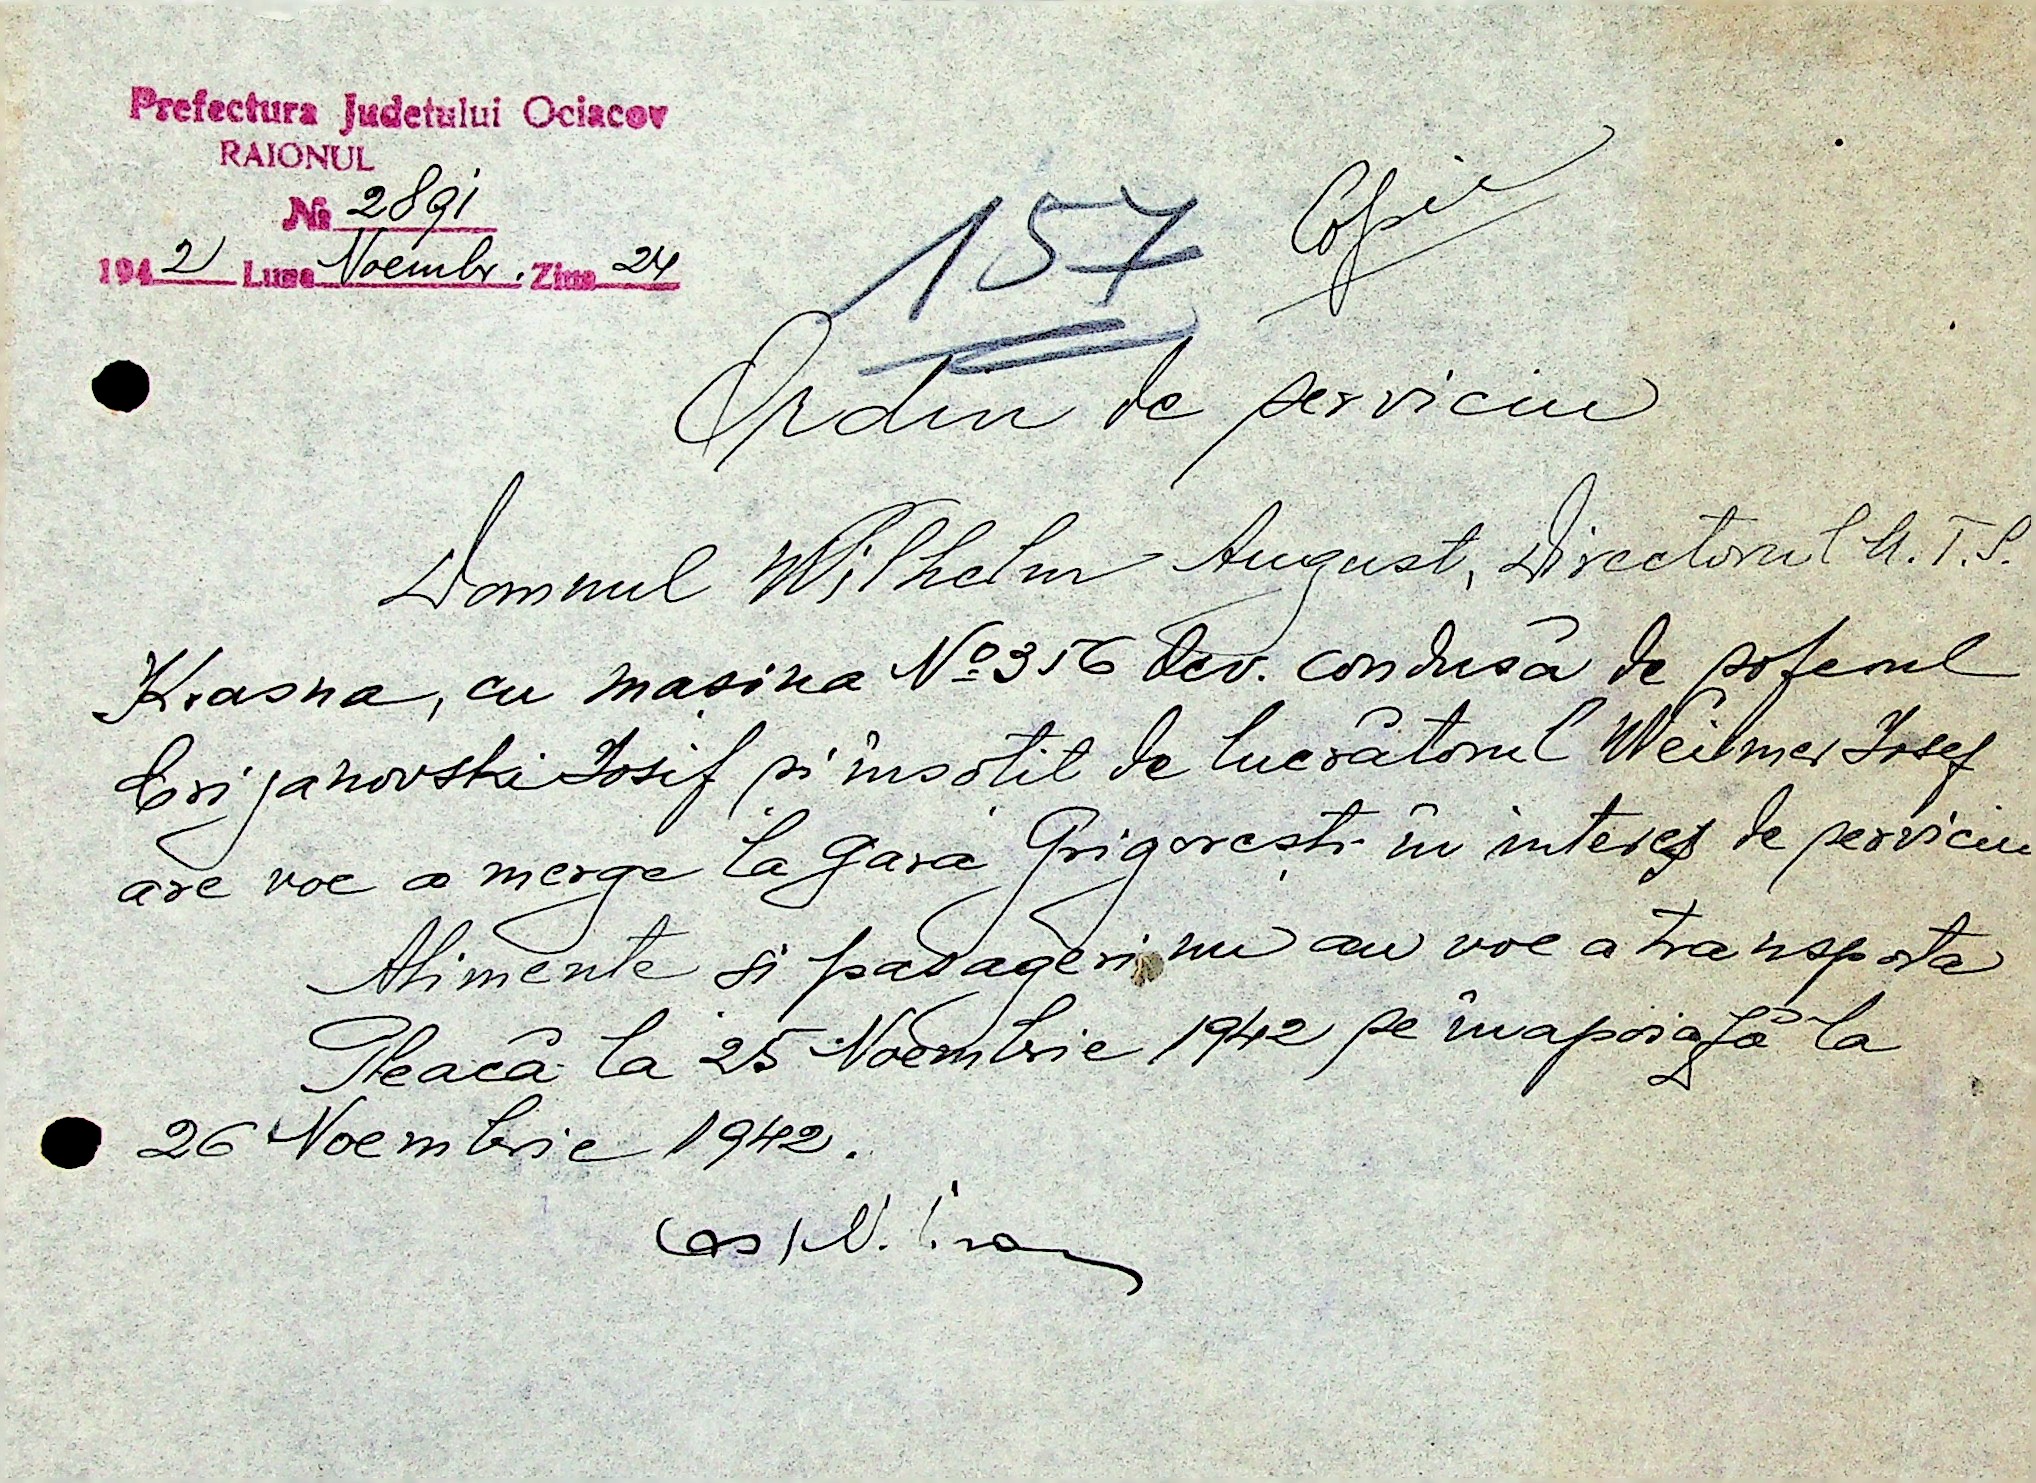 Prefectura Judetului Ociacov
RAIONUL
№ 2891
1942 Luna Noembr. Ziua 24
157
Copie
Ordin de serviciu
Domnul Wilhelm August, Directorul M.T.S.
Krasna, cu mașina No 356 Dev. condusă de șoferul
Crijanovski Iosif și însotit de lucrătorul Weilmer Iosef
are voe a merge la gara Grigorești în interes de serviciu
Alimente și pasageri nu au voe a transporta
Pleacă la 25 Noembrie 1942 se înapoiază la
26 Noembrie 1942.